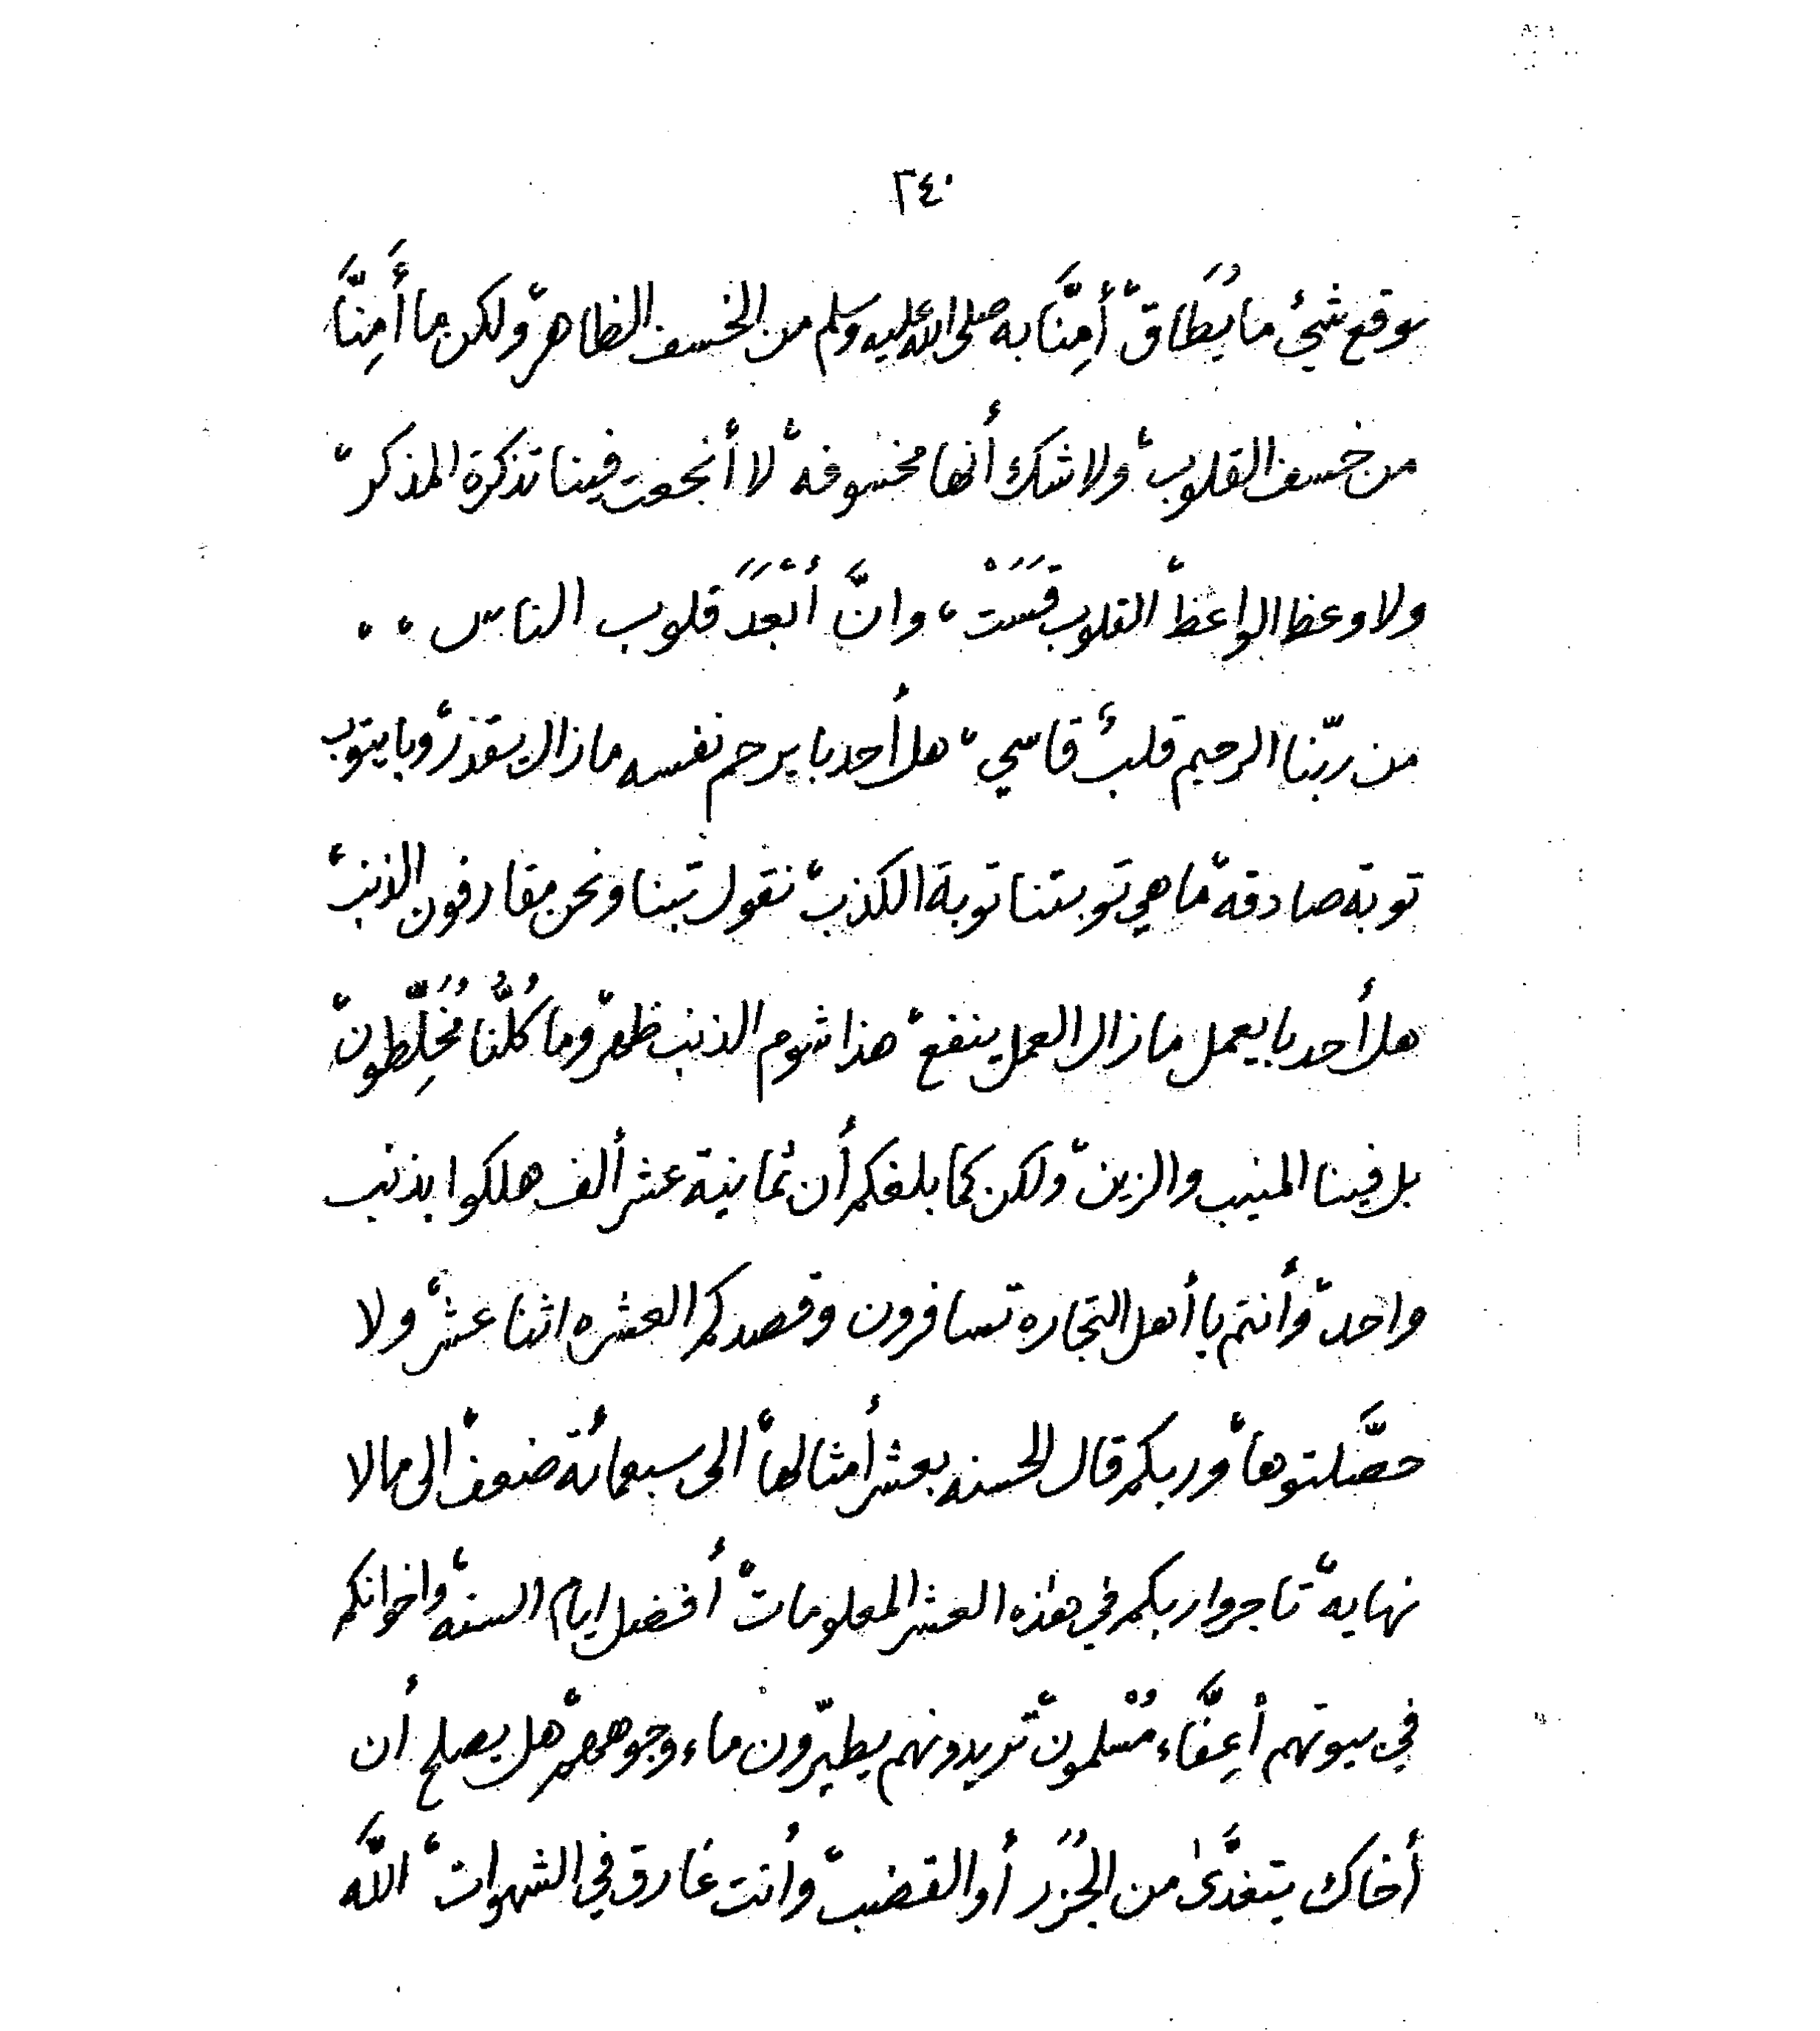 ٢٤٠
سوقع شيئ ما يُطَاق، أمِنَّا به صلى الله عليه وسلم من الخسف الظاهر، ولكن ما أَمِنَّا
من خسف القلوب، ولا شك أنها مخسوفه، لا أنجعت فينا تذكرة المذكر،
ولا وعظ الواعظ، القلوب قَسَتْ، وانَّ أبْعَدَ قلوب الناس ..
من ربّنا الرحيم قلبٌ قاسي، هل أحد با يرحم نفسه ما زال يقدر، وبا يتوب
توبة صادقة، ما هي توبتنا توبة الكذب، نقول تبنا ونحن مقارفون الذنب،
هل أحد با يعمل ما زال العمل ينفع، هذا شوم الذنب ظهر، وما كُلُّنا مُخَلِّطون،
بل فينا المنيب والزين، ولكن كما بلغكم أن ثمانية عشر ألف هلكوا بذنب
واحد، وأنتم يا أهل التجاره تسافرون وقصدكم العشره اثنا عشر، ولا
حصَّلتوها، وربكم قال الحسنه بعشر أمثالها، الى سبعمائة ضعف، الى مالا
نهايه، تاجروا ربكم في هٰذه العشر المعلومات، أفضل ايام السنه، واخوانكم
في بيوتهم أعِفَّاء مُسْلمون، تريدونهم يطيّرون ماء وجوههم، هل يصلح أن
أخاك يتغدَّىٰ من الجُزر أو القضب، وأنت غارق في الشهوات، اللَّه